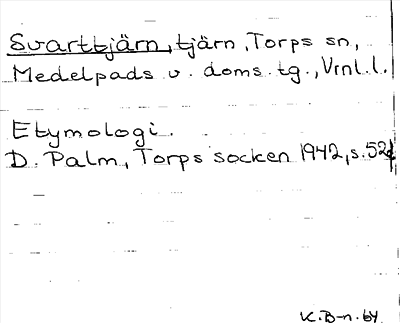 Svarttjärn, tjärn, Torps sn,
Medelpads v. doms. tg., Vrnl. l.
Etymologi.
D. Palm, Torps socken 1942, s. 52
K. B-n. 64